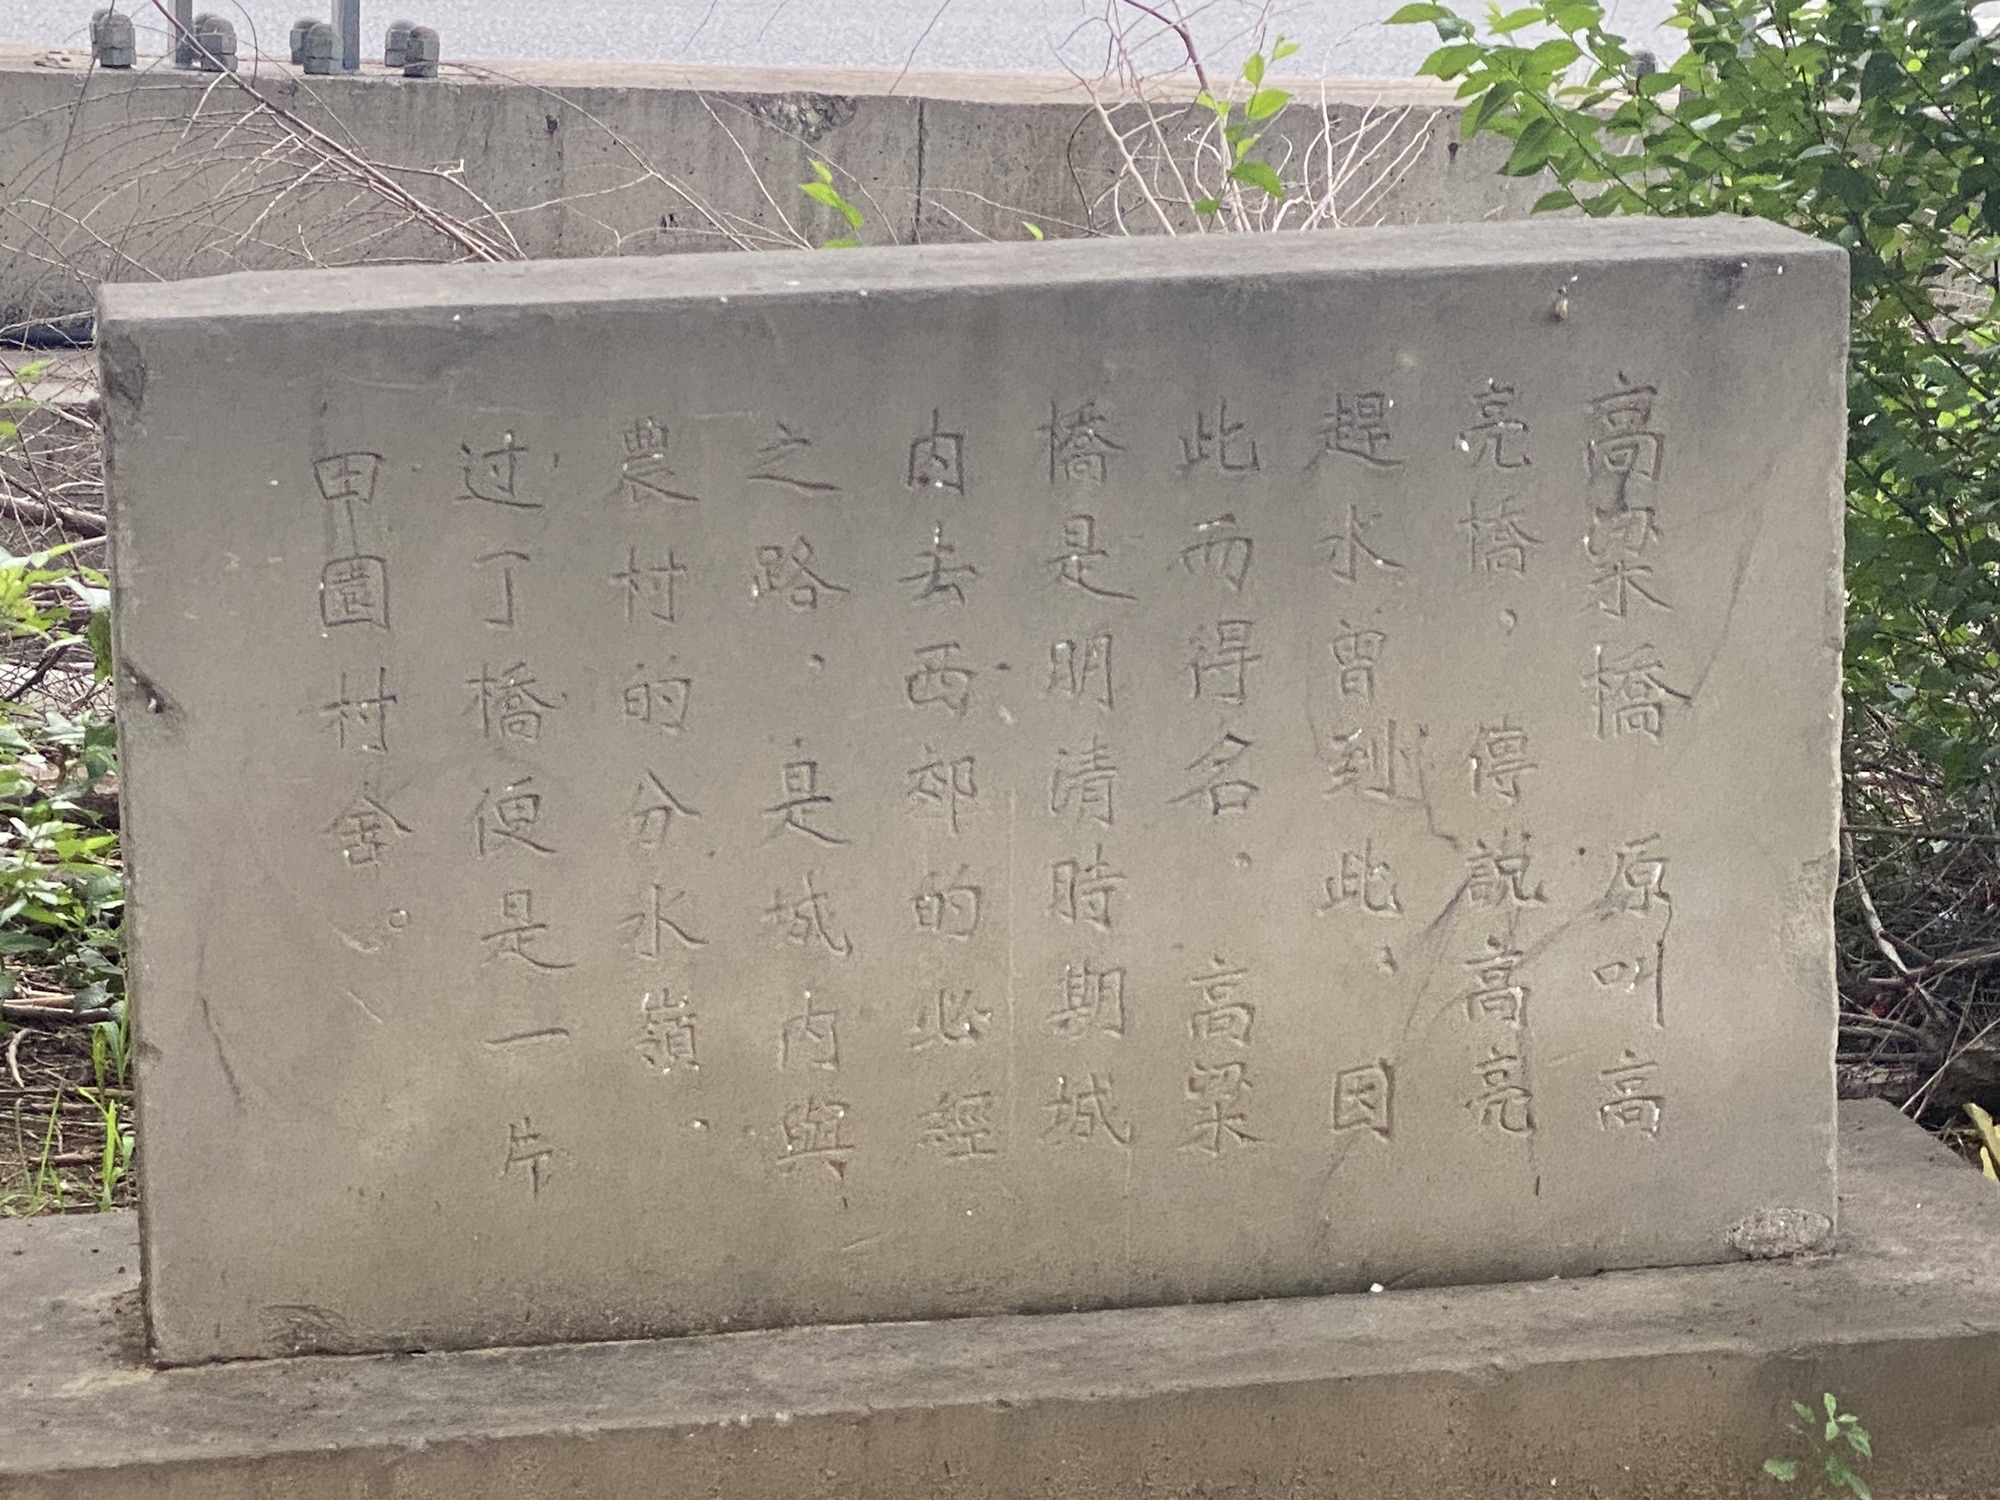 高梁橋 原叫高
亮橋，停説高亮
趕水曾到此，因
此而得名。高梁
橋是明清時期城
内去西郊的必經
之路，是城内與
農村的分水嶺。
过了橋便是一片
田園村舍。